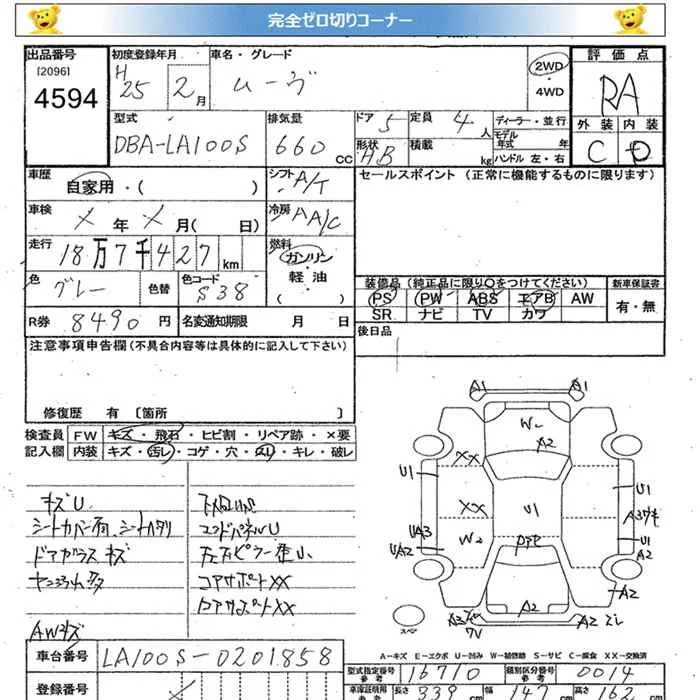 完全ゼロ切りコーナー
出品番号 初度登録年月 車名・グレード 2WD・4WD 評価点
[2096]
4594
H25 2月 ムーヴ RA
型式 排気量 ドア 5 定員 4人 ディーラー・並行
DBA-LA100S 660cc 形状 HB 積載 kg モデル年式 年 ハンドル 左・右
外装 内装
C D
車歴 自家用・( ) シフト A/T セールスポイント(正常に機能するものに限ります)
車検 X年 X月( 日) 冷房 AA/C
走行 18万7千427km 燃料 ガソリン 軽・油 ( )
色 グレー 色替 色コード S38
装備品(純正品に限り〇をつけてください) 新車保証書
PS PW ABS エアB AW 有・無
SR ナビ TV カワ
R券 8490円 名変通知期限 月 日 後日品
注意事項申告欄(不具合内容等は具体的に記入して下さい)
修復歴 有〔箇所 〕
検査員 FW キズ・飛石・ヒビ割・リペア跡・×要
記入欄 内装 キズ・汚レ・コゲ・穴・スレ・キレ・破レ
キズU
シートカバー有、シートヘタリ
ドアガラスキズ
AWキズ
エンドパネルU
コアサポートXX
コアサポートXX
A1 A1
W2 A2
XX
U1 XX U1 U1 A3
UA3 W2 U1
UA2 A2
A2
A3 7V A2 A2
スペア
A-キズ E-エクボ U-凹み W-補修跡 S-サビ C-腐食 XX-交換済
車台番号 LA100S-0201858
型式指定番号 参考 16710 類別区分番号 参考 0014
登録番号
車庫証明用 参考 長さ 339cm 幅 147cm 高さ 162cm